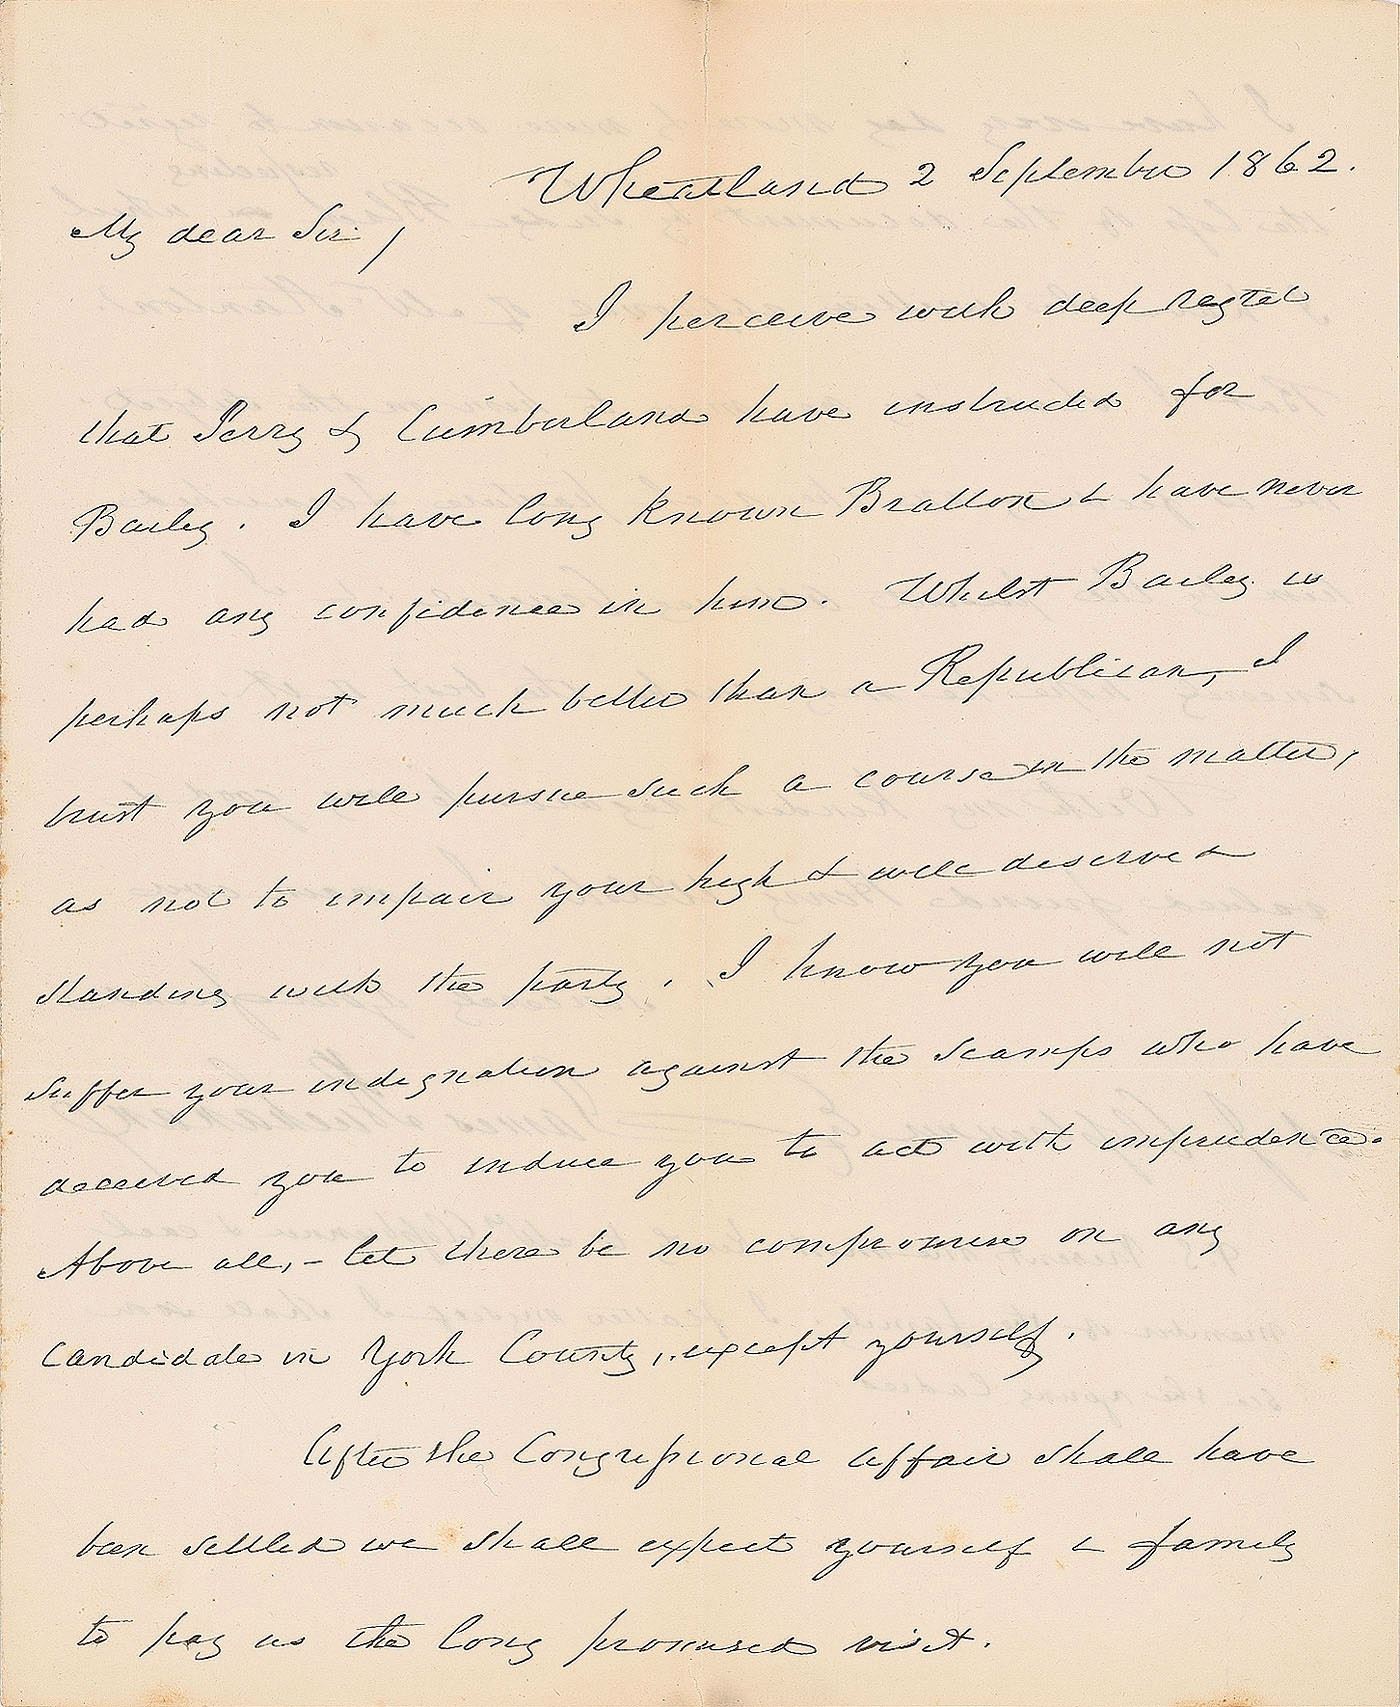 Wheatland 2 September 1862.
My dear Sir,
I perceive with deep regret
that Perry & Cumberland have instructed for
Bailey. I have long known Bratton & have never
had any confidence in him. Whilst Bailey is
perhaps not much better than a Republican, I
trust you will pursue such a course in the matter,
as not to impair your high & well deserved
standing with the party. I know you will not
suffer your indignation against the scamps who have
deceived you to induce you to act with imprudence.
Above all, – let there be no compromise on any
candidate in York County, except yourself.
After the Congressional affair shall have
been settled we shall expect yourself & family
to pay us the long promised visit.